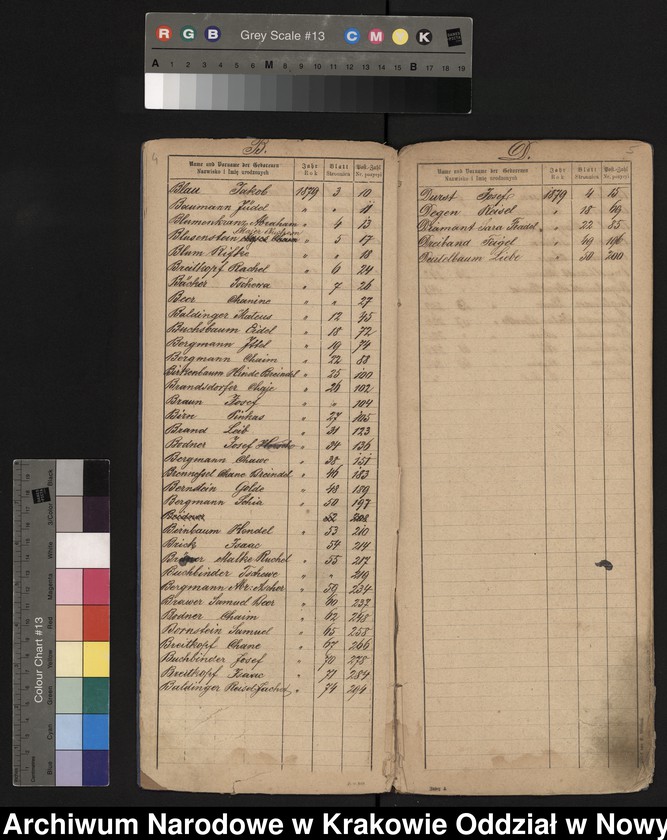 R G B Grey Scale #13 C M Y K
A 1 2 3 4 5 6 M 7 8 9 10 11 12 13 14 15 B 17 18 19
4 B.
Name und Vorname der Geborenen Jahr Blatt Post-Zahl
Nazwisko i Imię urodzonych Rok Stronnica Nr. pozycyi
Blau Jakob 1879 3 10
Baumann Jüdel " " 11
Blumenkranz Abraham " 4 13
Blusenstein " 5 17
Blum Rifke " " 18
Breitkopf Rachel " 6 24
Bäcker " 7 26
Beer Chanine " " 27
Baldinger Mateus " 12 45
Buchsbaum Eidel " 18 72
Bergmann Ittel " 19 74
Bergmann Chaim " 22 88
Birkenbaum Hinde Breindel " 25 100
Brandsdorfer Chaje " 26 102
Braun Josef " " 104
Birn Pinkas " 27 105
Brand Leib " 31 123
Bodner Josef " 34 136
Bergmann Chawe " 38 151
Bronnessel Chane Breindel " 46 183
Bernstein Golde " 48 189
Bergmann Schia " 50 197
Bodner 52 208
Birnbaum Hendel " 53 210
Brick Isaac " 54 214
Malke Ruchel " 55 217
Buchbinder " " 219
Bergmann Ascher " 59 234
Brawer Samuel Beer " 60 237
Bodner Chaim " 62 248
Bornstein Samuel " 65 258
Breitkopf Chane " 67 266
Buchbinder Josef " 70 278
Breitkopf Isaac " 71 284
Baldinger Reisel " 74 294
D. 5
Name und Vorname der Geborenen Jahr Blatt Post-Zahl
Nazwisko i Imię urodzonych Rok Stronnica Nr. pozycyi
Durst Josef 1879 4 15
Degen Reisel " 18 69
Diamant Sara Fradel " 22 85
Dreiband Feigel " 49 196
Deutelbaum Liebe " 50 200
Colour Chart #13
Blue Cyan Green Yellow Red Magenta White 3/Color Black
Archiwum Narodowe w Krakowie Oddział w Nowy